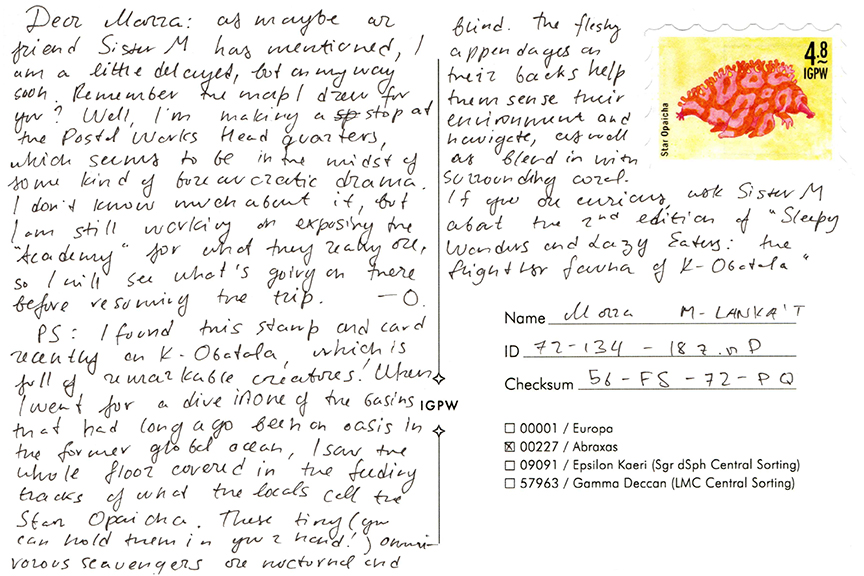 Dear Morra: as maybe our
friend Sister M has mentioned, I
am a little delayed, but on my way
soon. Remember the map I drew for
you? Well, I'm making a sp stop at
the Postal Works Headquarters,
which seems to be in the midst of
some kind of bureaucratic drama.
I don't know much about it, but
I am still working on exposing the
"Academy" for what they really are,
so I will see what's going on there
before resuming the trip. —O.
PS: I found this stamp and card
recently on K-Obatala, which is
full of remarkable creatures! When
I went for a dive in one of the basins
that had long ago been an oasis in
the former global ocean, I saw the
whole floor covered in the feeding
tracks of what the locals call the
Star Opaicha. These tiny (you
can hold them in your hand!) omni-
vorous scavengers are nocturnal and
blind. The fleshy
appendages on
their backs help
them sense their
environment and
navigate, as well
as blend in with
surrounding coral.
If you are curious, ask Sister M
about the 2nd edition of "Sleepy
Wonders and Lazy Eaters: the
flightless fauna of K-Obatala"
4.8
IGPW
Star Opaicha
IGPW
Name Morra M-LANKA'T
ID 72-134 - 18 z. n P
Checksum 56-FS-72-PQ
☐ 00001 / Europa
☒ 00227 / Abraxas
☐ 09091 / Epsilon Kaeri (Sgr dSph Central Sorting)
☐ 57963 / Gamma Deccan (LMC Central Sorting)